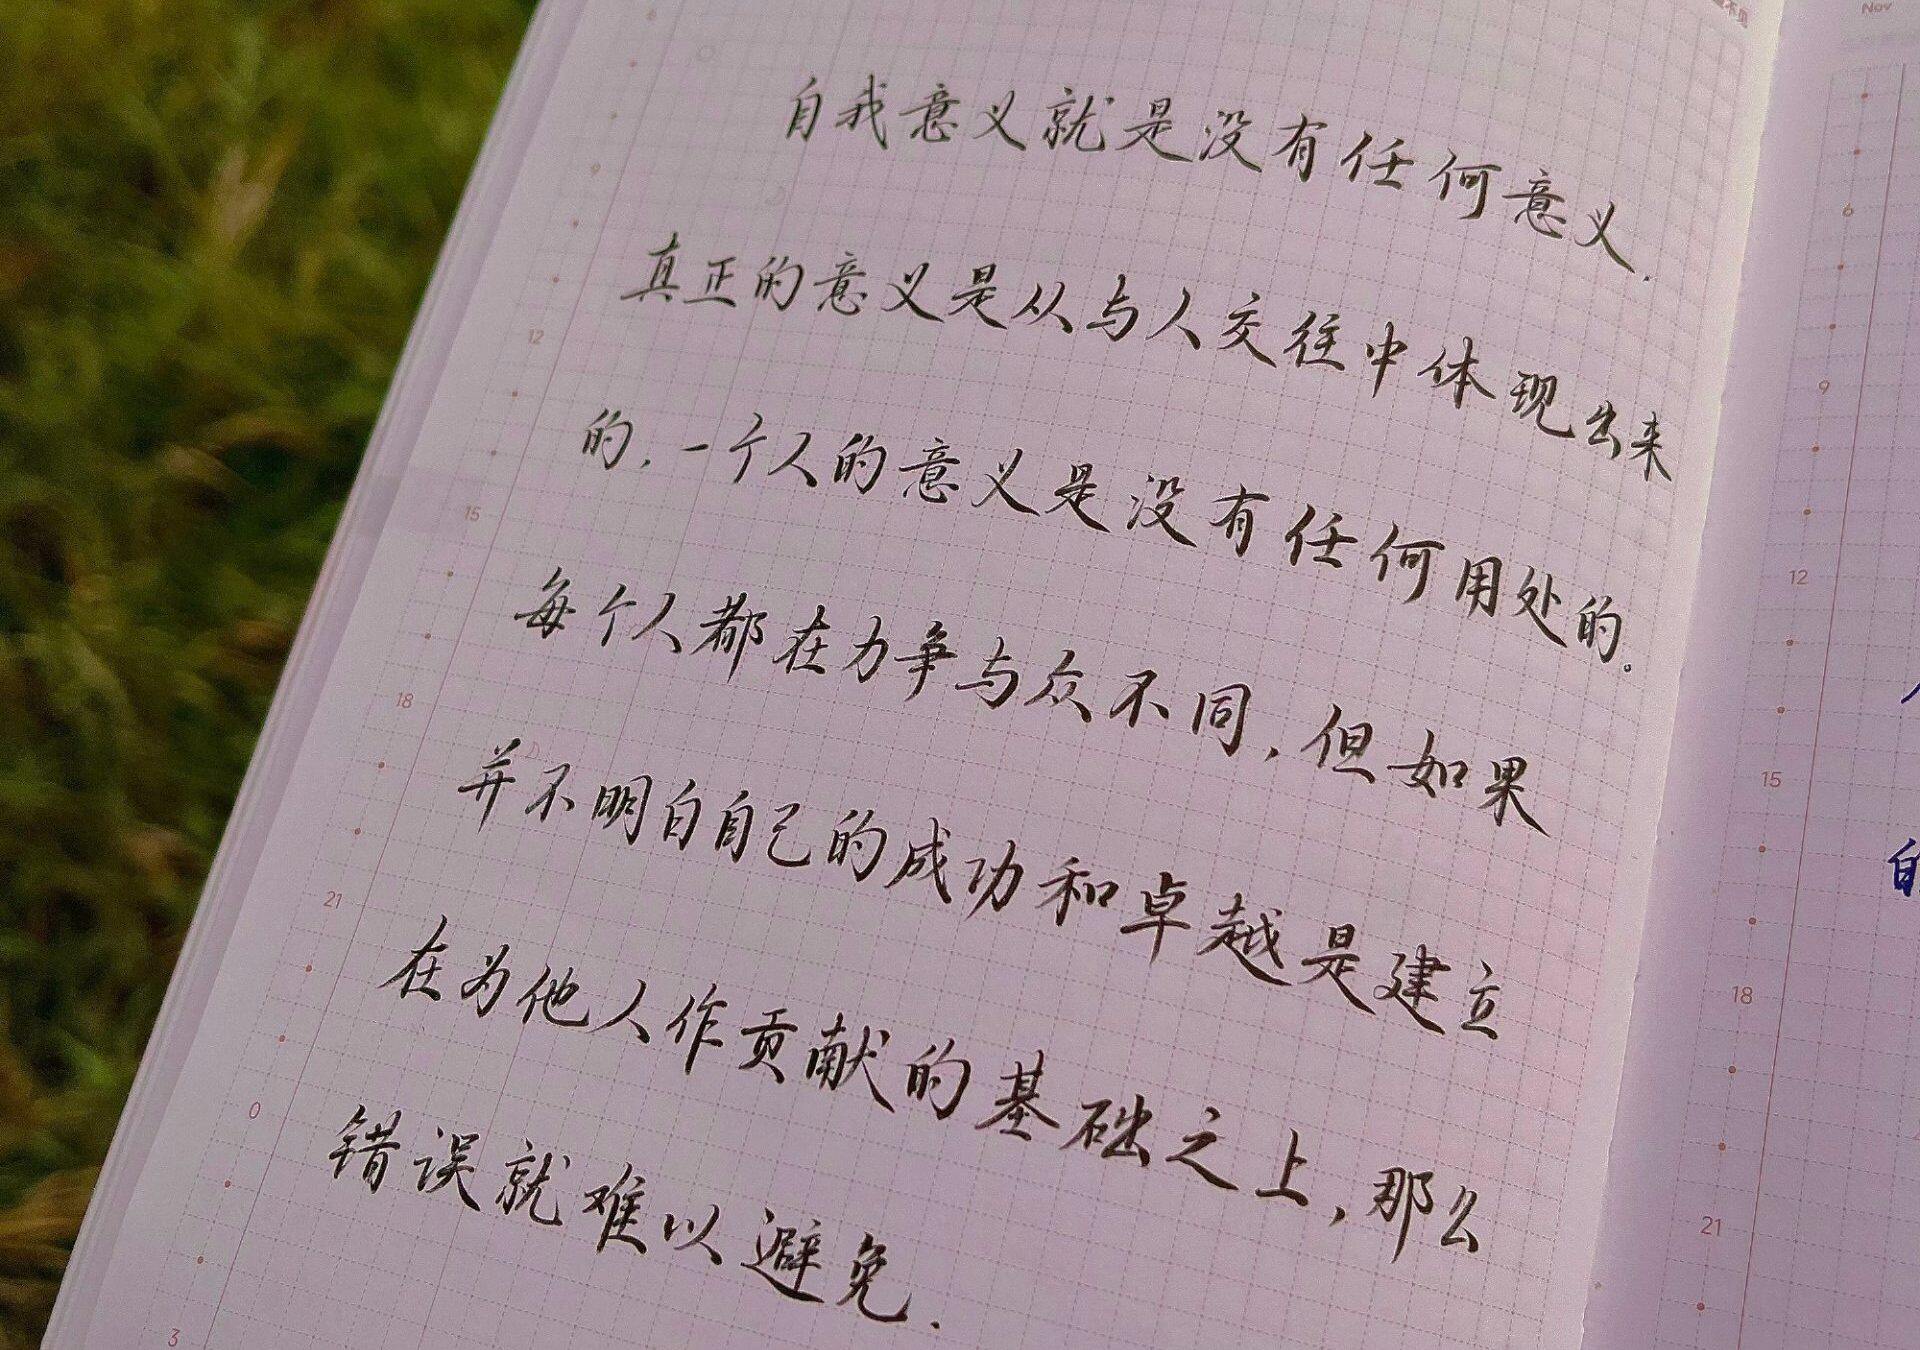 自我意义就是没有任何意义.
真正的意义是从与人交往中体现出来
的.一个人的意义是没有任何用处的。
每个人都在力争与众不同,但如果
并不明白自己的成功和卓越是建立
在为他人作贡献的基础之上,那么
错误就难以避免.
9
12
15
18
21
0
3
Nov
6
9
12
15
18
21
的